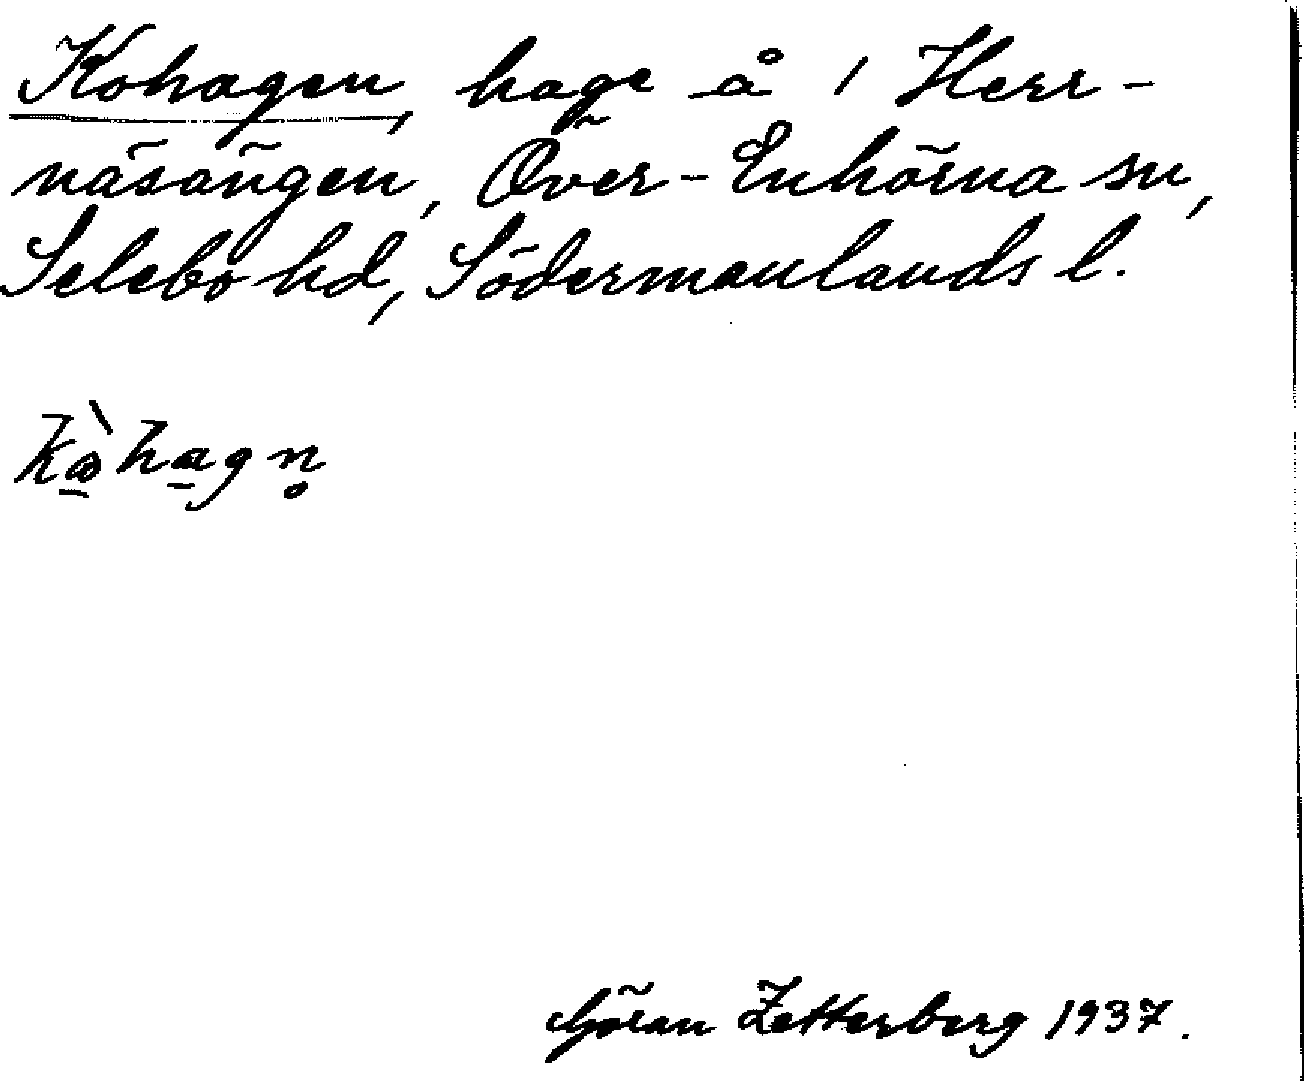 Kohagen, hage å 1 Herr-
näsängen, Över-Enhörna sn,
Selebo hd, Södermanlands l.
Kὼ̠ha̠gn̥
Göran Zetterberg 1937.